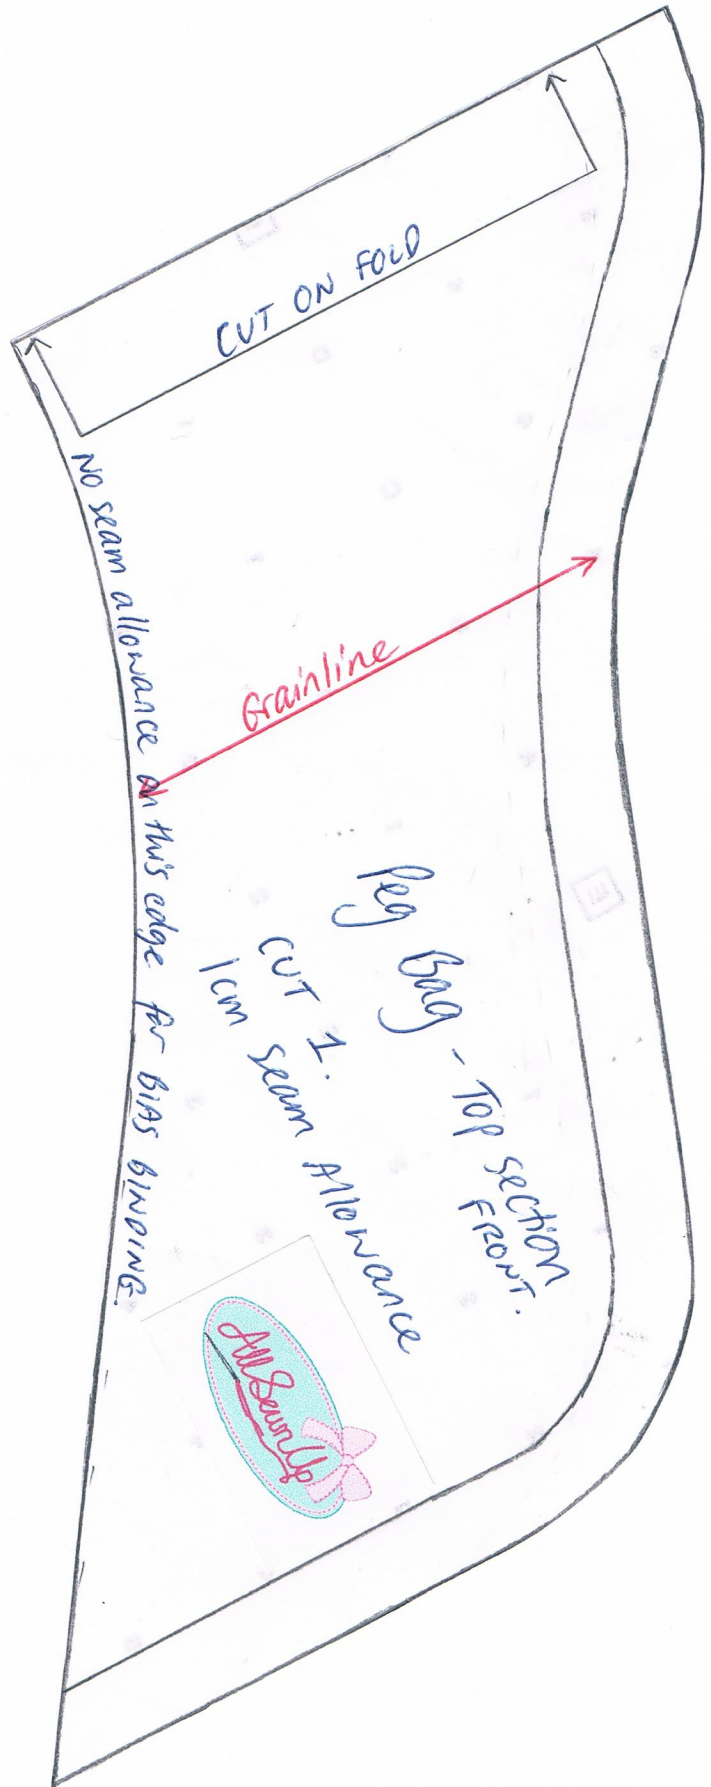 CUT ON FOLD
No seam allowance on this edge for BIAS BINDING.
Grainline
Peg Bag - Top section
FRONT.
CUT 1.
1cm seam Allowance
All Sewn Up